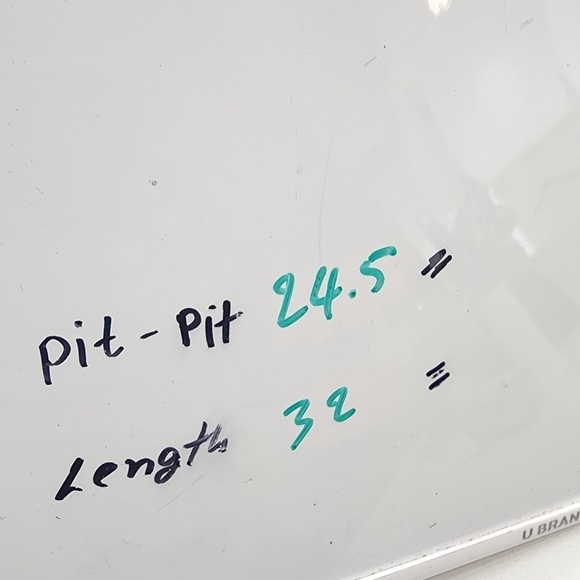 Pit - Pit 24.5 "
Length 32 "
U BRAN